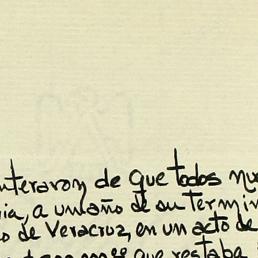 nteraron de que todos nu
ia, a un año de su termin
o de Veracruz, en un acto de
que restaba